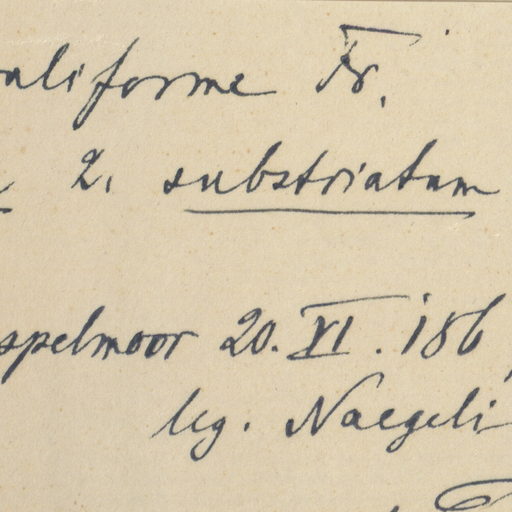 aliforme Fr.
2. substriatum
spelmoor 20. VI. 186
leg. Naegeli